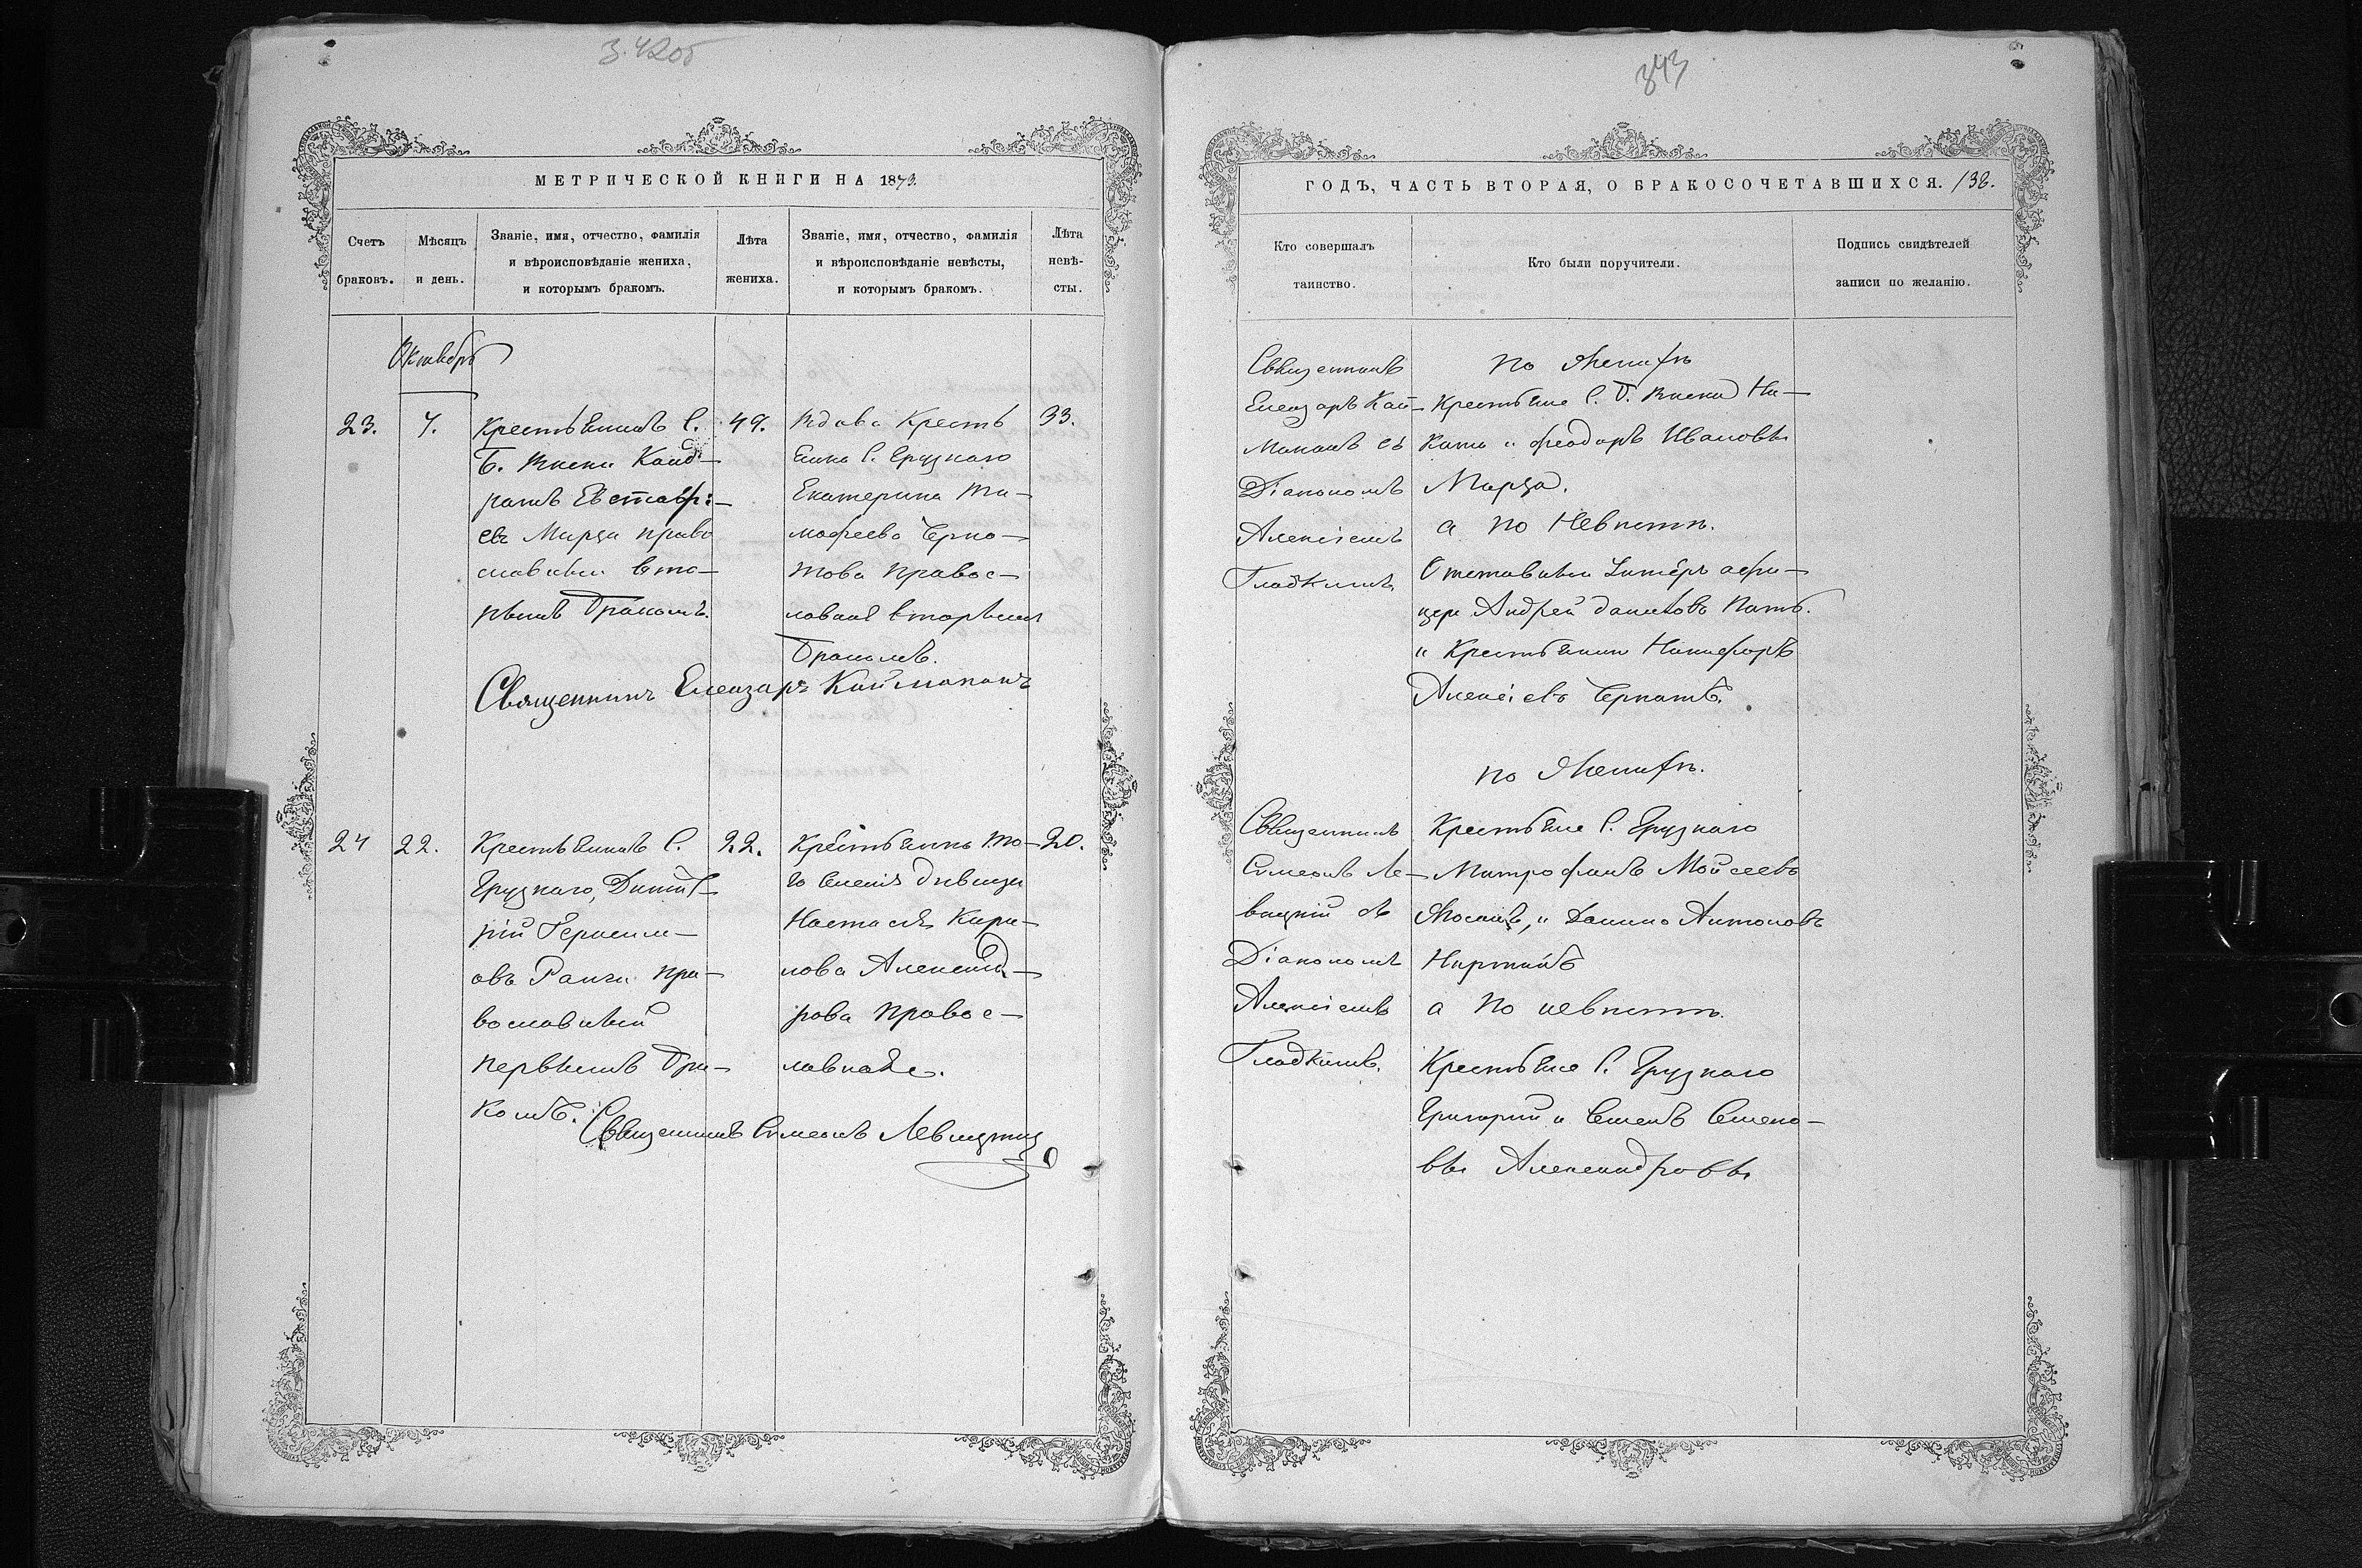 342об
МЕТРИЧЕСКОЙ КНИГИ НА 1873.
Счетъ браковъ.
Мѣсяцъ и день.
Званіе, имя, отчество, фамилія
и вѣроисповѣданіе жениха,
и которымъ бракомъ.
Лѣта жениха.
Званіе, имя, отчество, фамилія
и вѣроисповѣданіе невѣсты,
и которымъ бракомъ.
Лѣта невѣ-
сты.
Октябрь
23.
7.
Крестьянинъ С.
Б. Янисоли Конд-
ратъ Евстафі-
евъ Мирза право
славный вто-
рымъ бракомъ.
49.
Вдова Кресть
янка С. Грузкаго
Екатерина Ти-
мофеева Черно-
това правос-
лавная вторымъ
бракомъ.
33.
Священникъ Елеазаръ Каймаканъ
24
22.
Крестьянинъ С.
Грузкаго, Димит-
рій Герасим-
овъ Ранги пра-
вославный
первымъ бра-
комъ.
22.
Крестьянка то-
го селенія дивица
Настасія Кири-
лова Александ-
рова правос-
лавная.
20.
Священникъ Симеонъ Левицкій
343
ГОДЪ, ЧАСТЬ ВТОРАЯ, О БРАКОСОЧЕТАВШИХСЯ. 138.
Кто совершалъ
таинство.
Кто были поручители.
Подпись свидѣтелей
записи по желанію.
Священникъ
Елеазаръ Кай-
маканъ съ
Діакономъ
Алексіемъ
Гладкимъ
по Женихѣ
Крестьяне С. Б. Ни-
кита и Феодоръ Ивановы
Мирза.
а по Невѣстѣ.
Отставный Унтеръ афи-
церъ Андрей
и Крестьянинъ Никифоръ
Алексіевъ Чернотъ.
Священникъ
Симеонъ Ле-
вицкій съ
Діакономъ
Алексіемъ
Гладкимъ.
по Женихѣ.
Крестьяне С. Грузкаго
Митрофанъ Мойсеевъ
и Данило Антоновъ
а по невѣстѣ.
Крестьяне С. Грузкаго
Григорий и Семенъ Семено-
вы Александровы